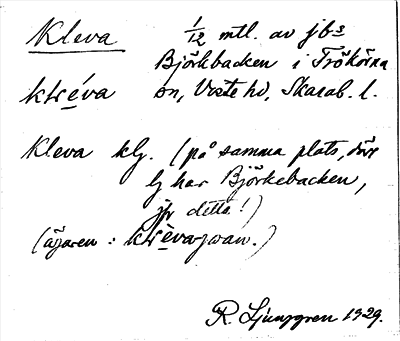 Kleva 1/12 mtl. av jb=
Björkbacken i Trökörna
klèva sn, Viste hd, Skarab. l.
Kleva lg. (på samma plats, där
lg har Björkebacken,
jfr detta!)
(ägaren: klèva-jwan.)
R. Ljunggren 1929.